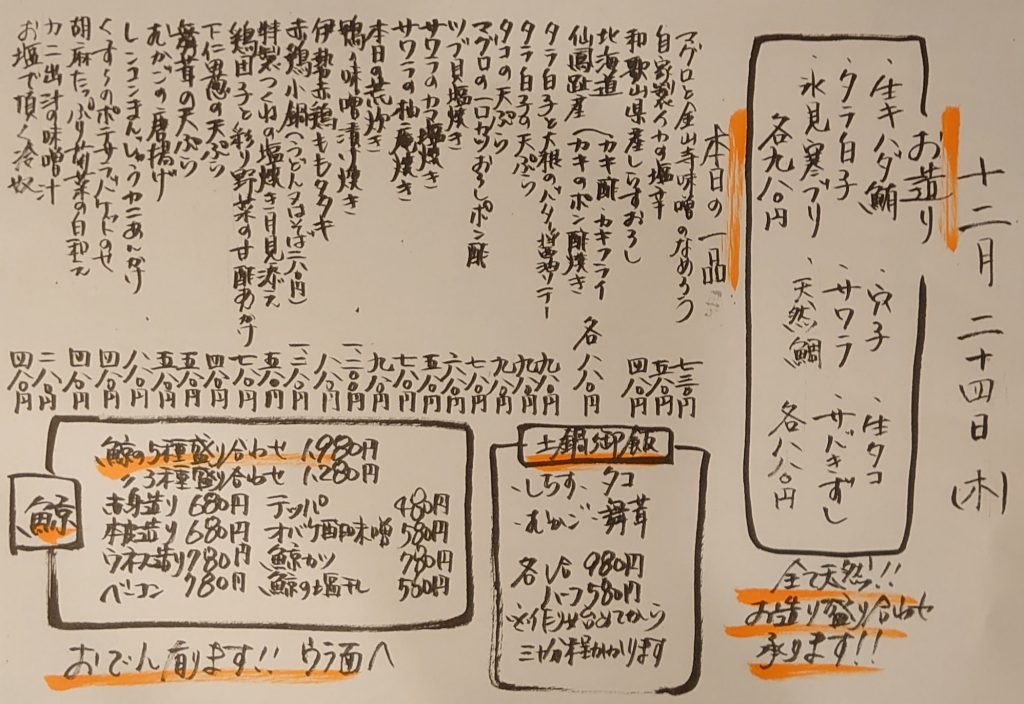 十二月二十四日(木)
お造り
・生キハダ鮪
・タラ白子
・氷見寒ブリ
各九八〇円
・穴子
・サワラ
・天然鯛
・生タコ
・サバきずし
各八八〇円
全て天然!!
お造り盛り合わせ
承ります!!
本日の一品
マグロと金山寺味噌のなめろう 七三〇円
自家製イカの塩辛 五八〇円
和歌山県産しらすおろし 四八〇円
北海道
仙鳳趾産
(カキ酢 カキフライ
(カキのポン酢焼き
各八八〇円
タラ白子と大根のバター醤油ソテー 九八〇円
タラ白子の天ぷら 九八〇円
タコの天ぷら 九八〇円
マグロの一口カツおろしポン酢 七八〇円
ツブ貝塩焼き 六八〇円
サワラのカマ塩焼き 五八〇円
サワラの柚庵焼き 七八〇円
本日の荒炊き 九八〇円
鴨の味噌漬け焼き 一二〇〇円
伊勢赤鶏ももタタキ 八八〇円
赤鶏小鍋(うどん又はそば二八〇円) 一二八〇円
特製つくねの塩焼き月見添え 五八〇円
鶏団子と彩り野菜の甘酢あんかけ 七八〇円
下仁田葱の天ぷら 四八〇円
舞茸の天ぷら 五八〇円
むかごの唐揚げ 五八〇円
レンコンまんじゅうカニあんかけ 八八〇円
のポテサラバケットのせ 四八〇円
胡麻たっぷり菊菜の白和え 四八〇円
カニ出汁の味噌汁 二八〇円
お塩で頂く冷奴 四八〇円
土鍋御飯
・しらす ・タコ
・むかご ・舞茸
各1合 980円
ハーフ580円
※作り始めてから
三十分程かかります
鯨
鯨の5種盛り合わせ 1,980円
〃3種盛り合わせ 1,280円
赤身造り 680円
本皮造り 680円
ウネス造り 780円
ベーコン 780円
テッパ 480円
オバケ酢味噌 580円
鯨カツ 780円
鯨の塩干し 580円
おでん有ります!! ウラ面へ